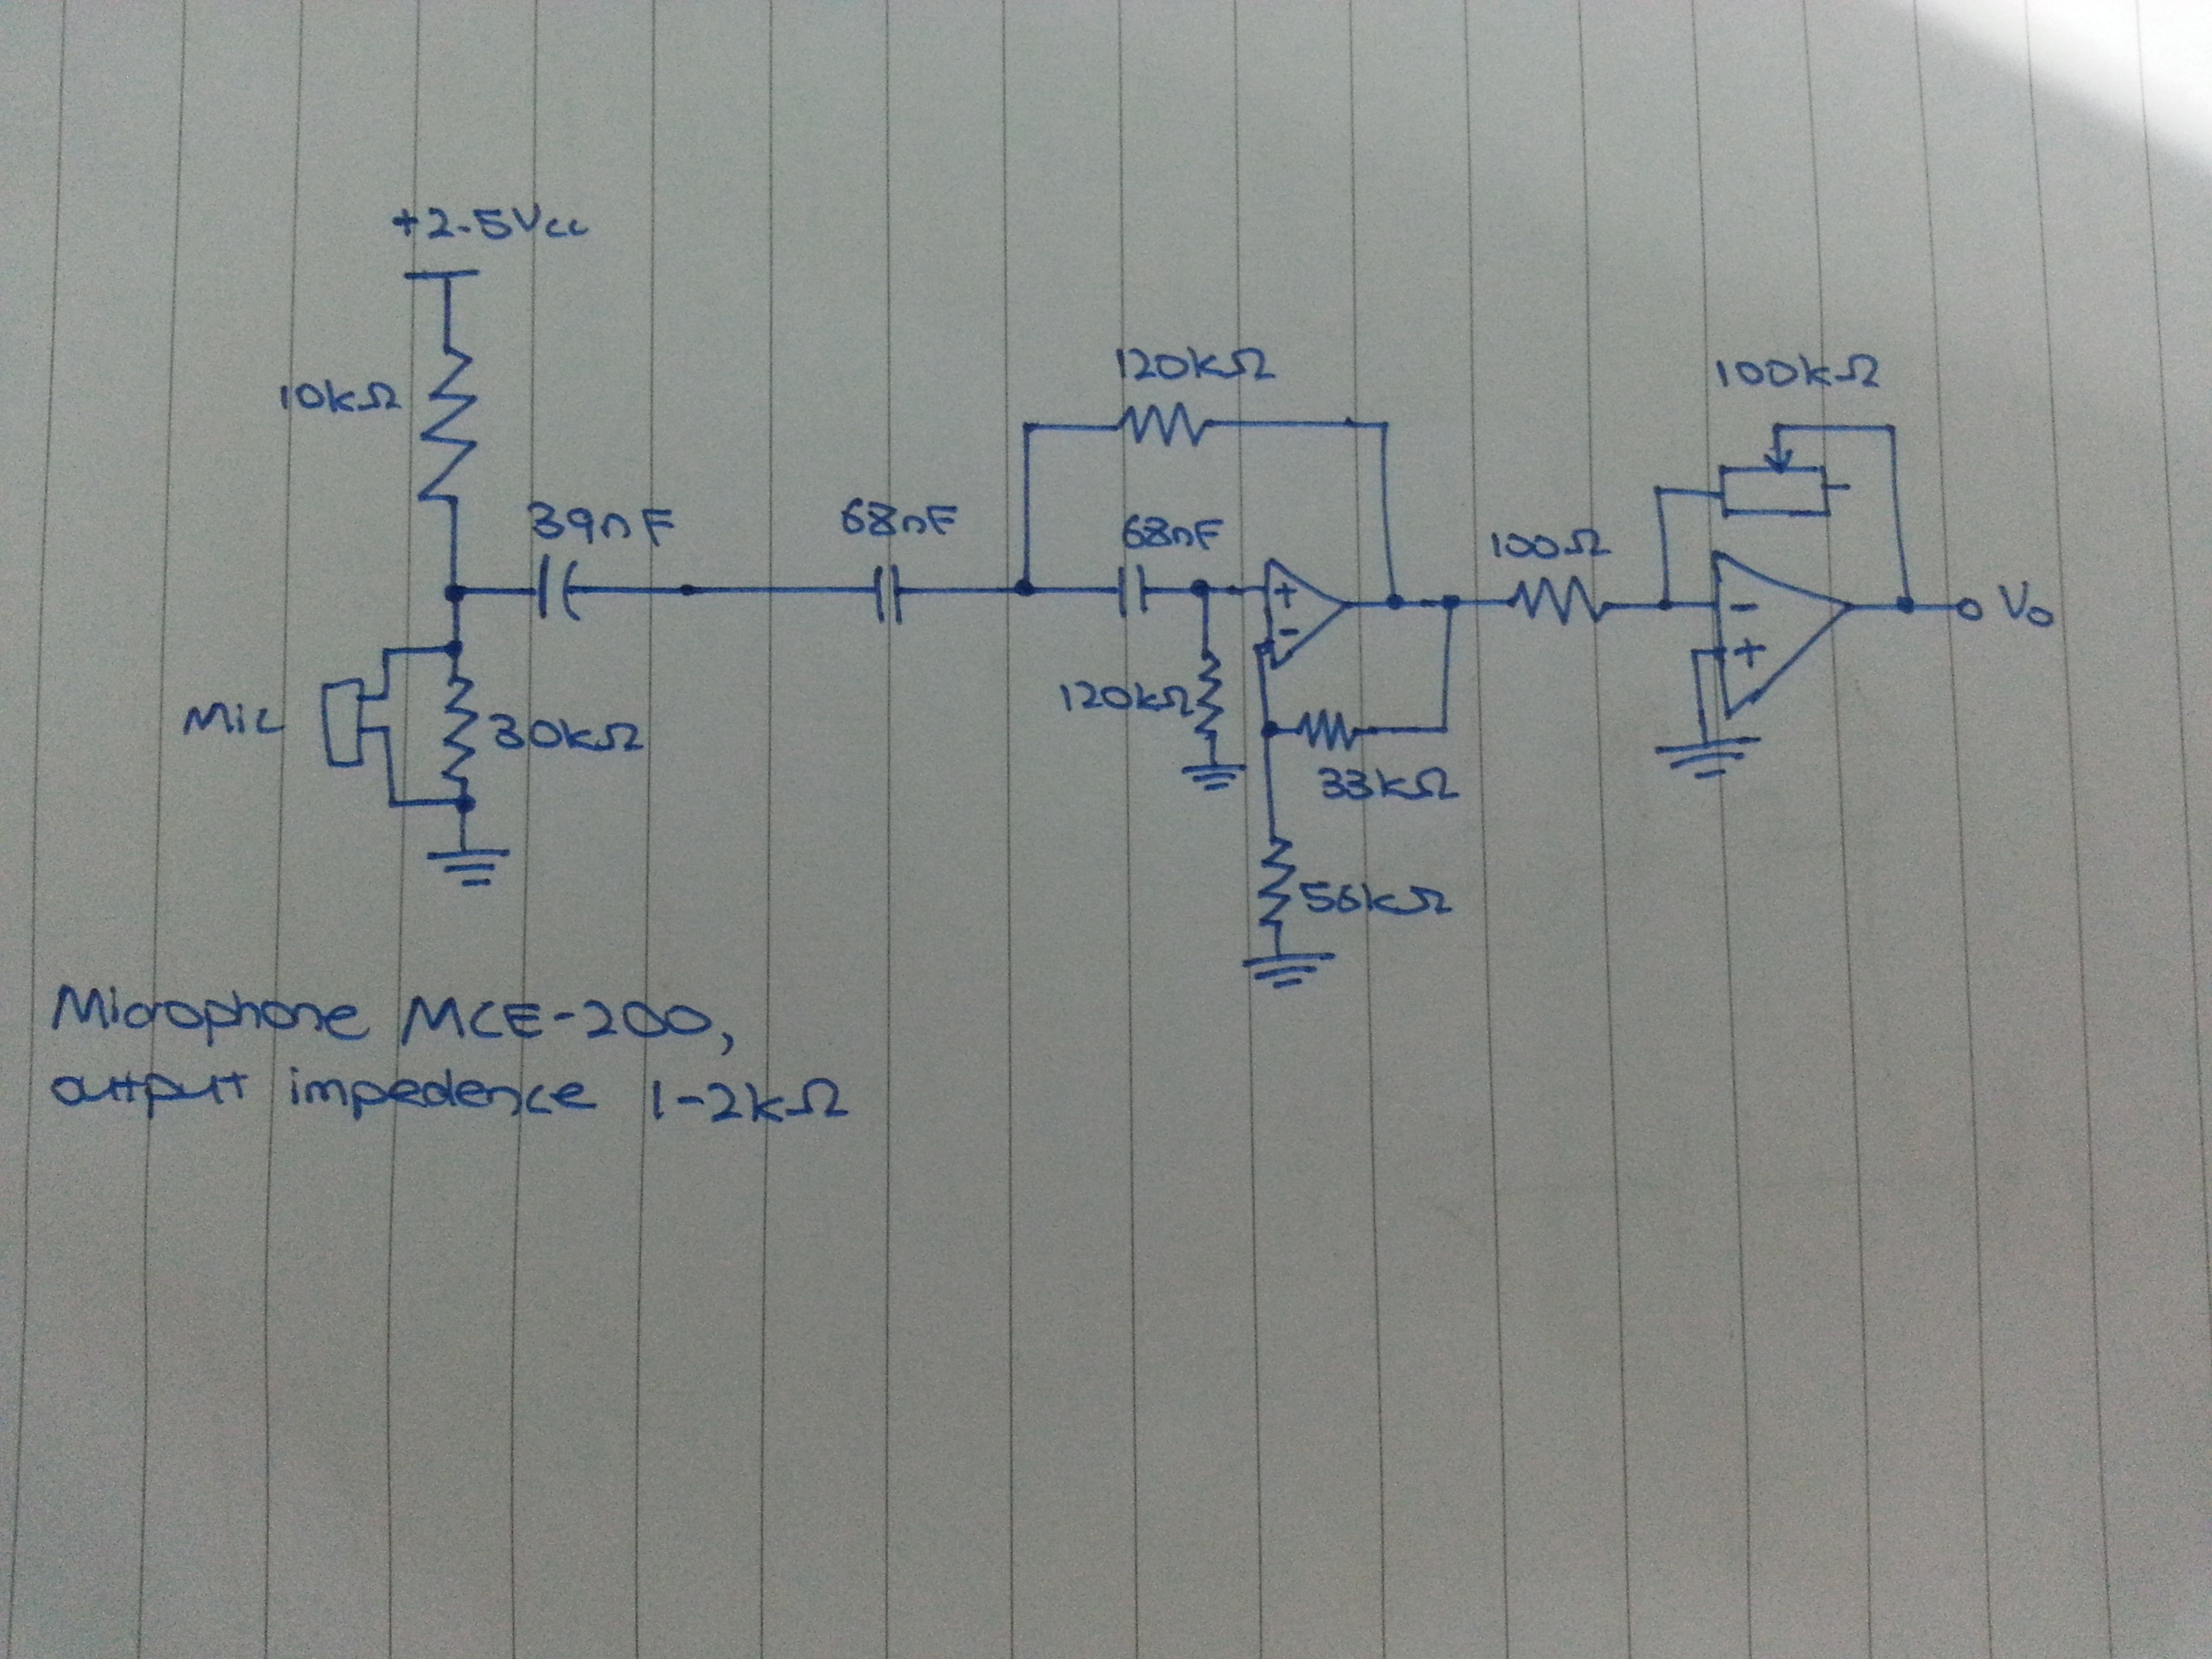 +2.5Vcc
10kΩ
39nF
68nF
120kΩ
68nF
100Ω
100kΩ
+
-
-
+
Vo
Mic
30kΩ
120kΩ
33kΩ
56kΩ
Microphone MCE-200,
output impedence 1-2kΩ